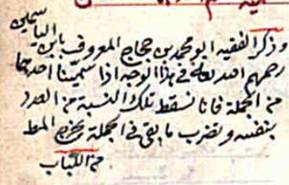 وذكر الفقيه ابو محمد بن حجاج المعروف بابن الياسمين
رحمهم الله تعالى في هذا الوجه اذا سمّينا احدهما
من الجملة فانا نسقط تلك النسبة من العدد
بنفسه ونضرب ما بقى في الجملة يخرج المط
من اللباب